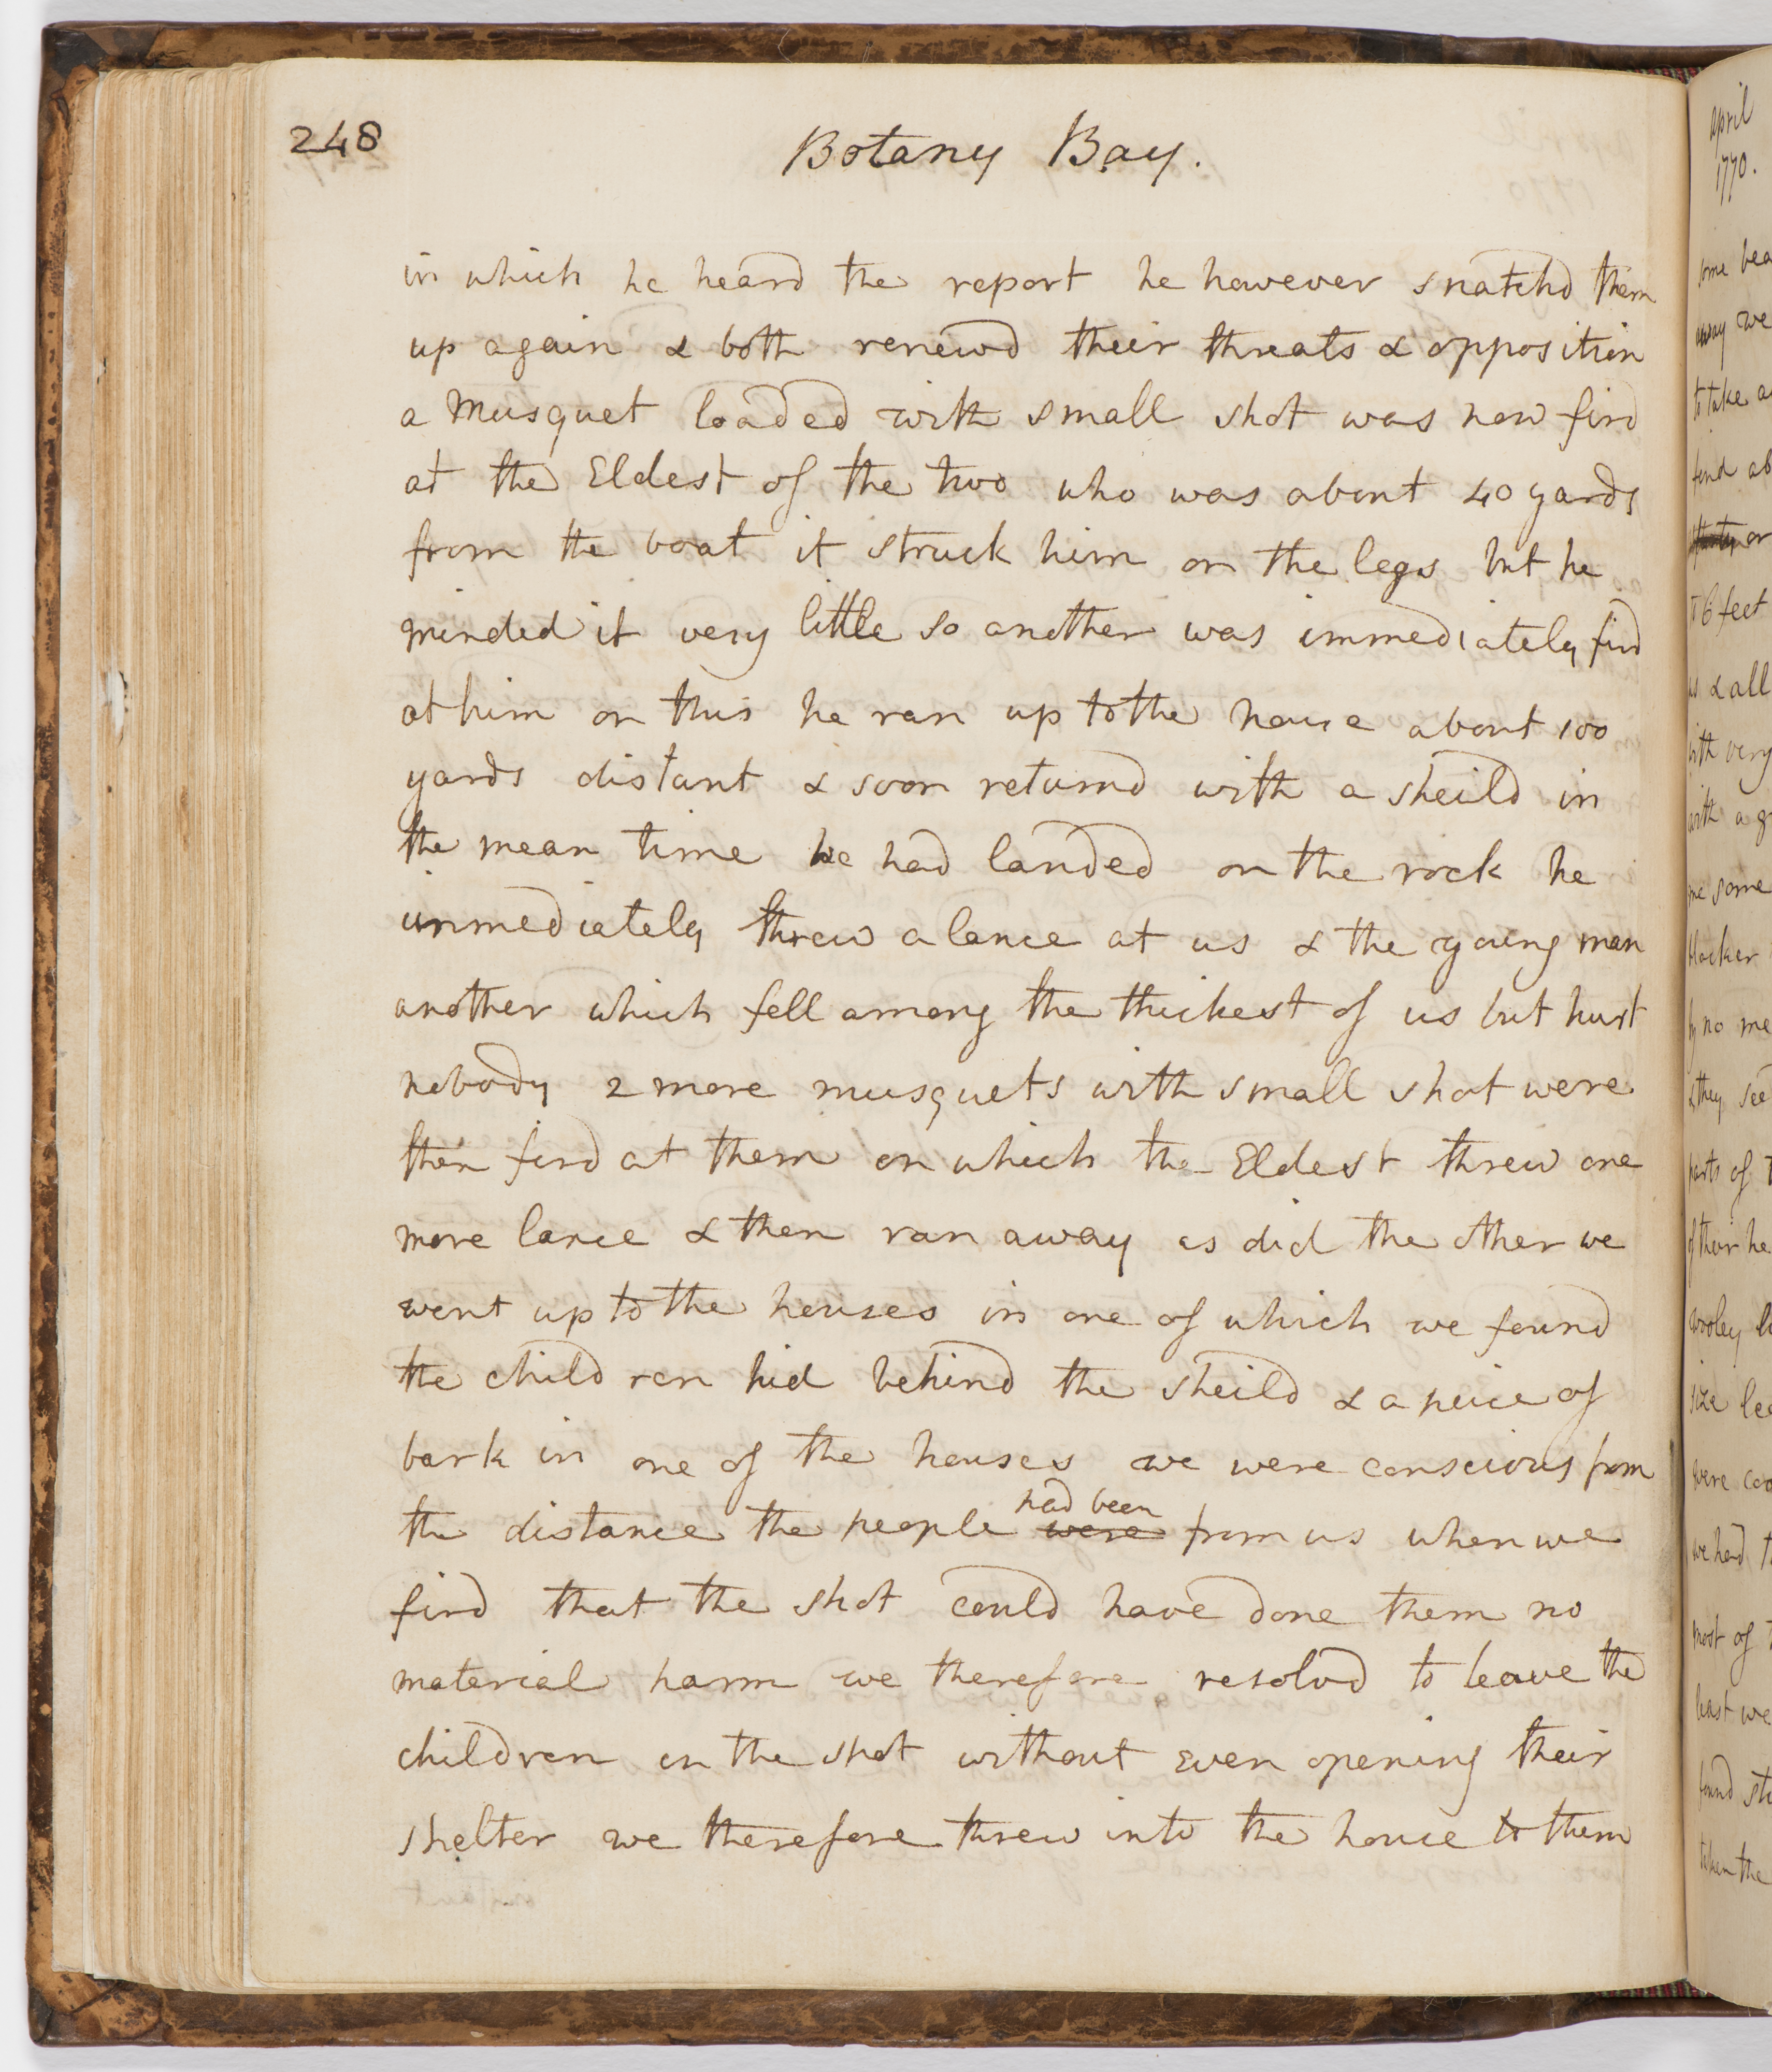 248
Botany Bay.
in which he heard the report he however snatchd them
up again & both renewd their threats & opposition
a Musquet loaded with small shot was now fird
at the Eldest of the two who was about 40 yards
from the boat it struck him on the legs but he
minded it very little so another was immediately fird
at him on this he ran up to the house about 100
yards distant & soon returnd with a sheild in
the mean time we had landed on the rock he
immediately threw a lance at us & the young man
another which fell among the thickest of us but hurt
nobody 2 more musquets with small shot were
then fird at them on which the Eldest threw one
more lance & then ran away as did the other we
went up to the houses in one of which we found
the children hid behind the sheild & a peice of
bark in one of the houses we were conscious from
the distance the people were had been from us when we
fird that the shot could have done them no
material harm we therefore resolvd to leave the
children on the spot without even opening their
shelter we therefore threw into the house to them
april
1770.
some
away we
to take
6 feet
& all
with very
some
blacker
no
they
parts of
of their
wooley
size
were
most of
least we
found
taken the